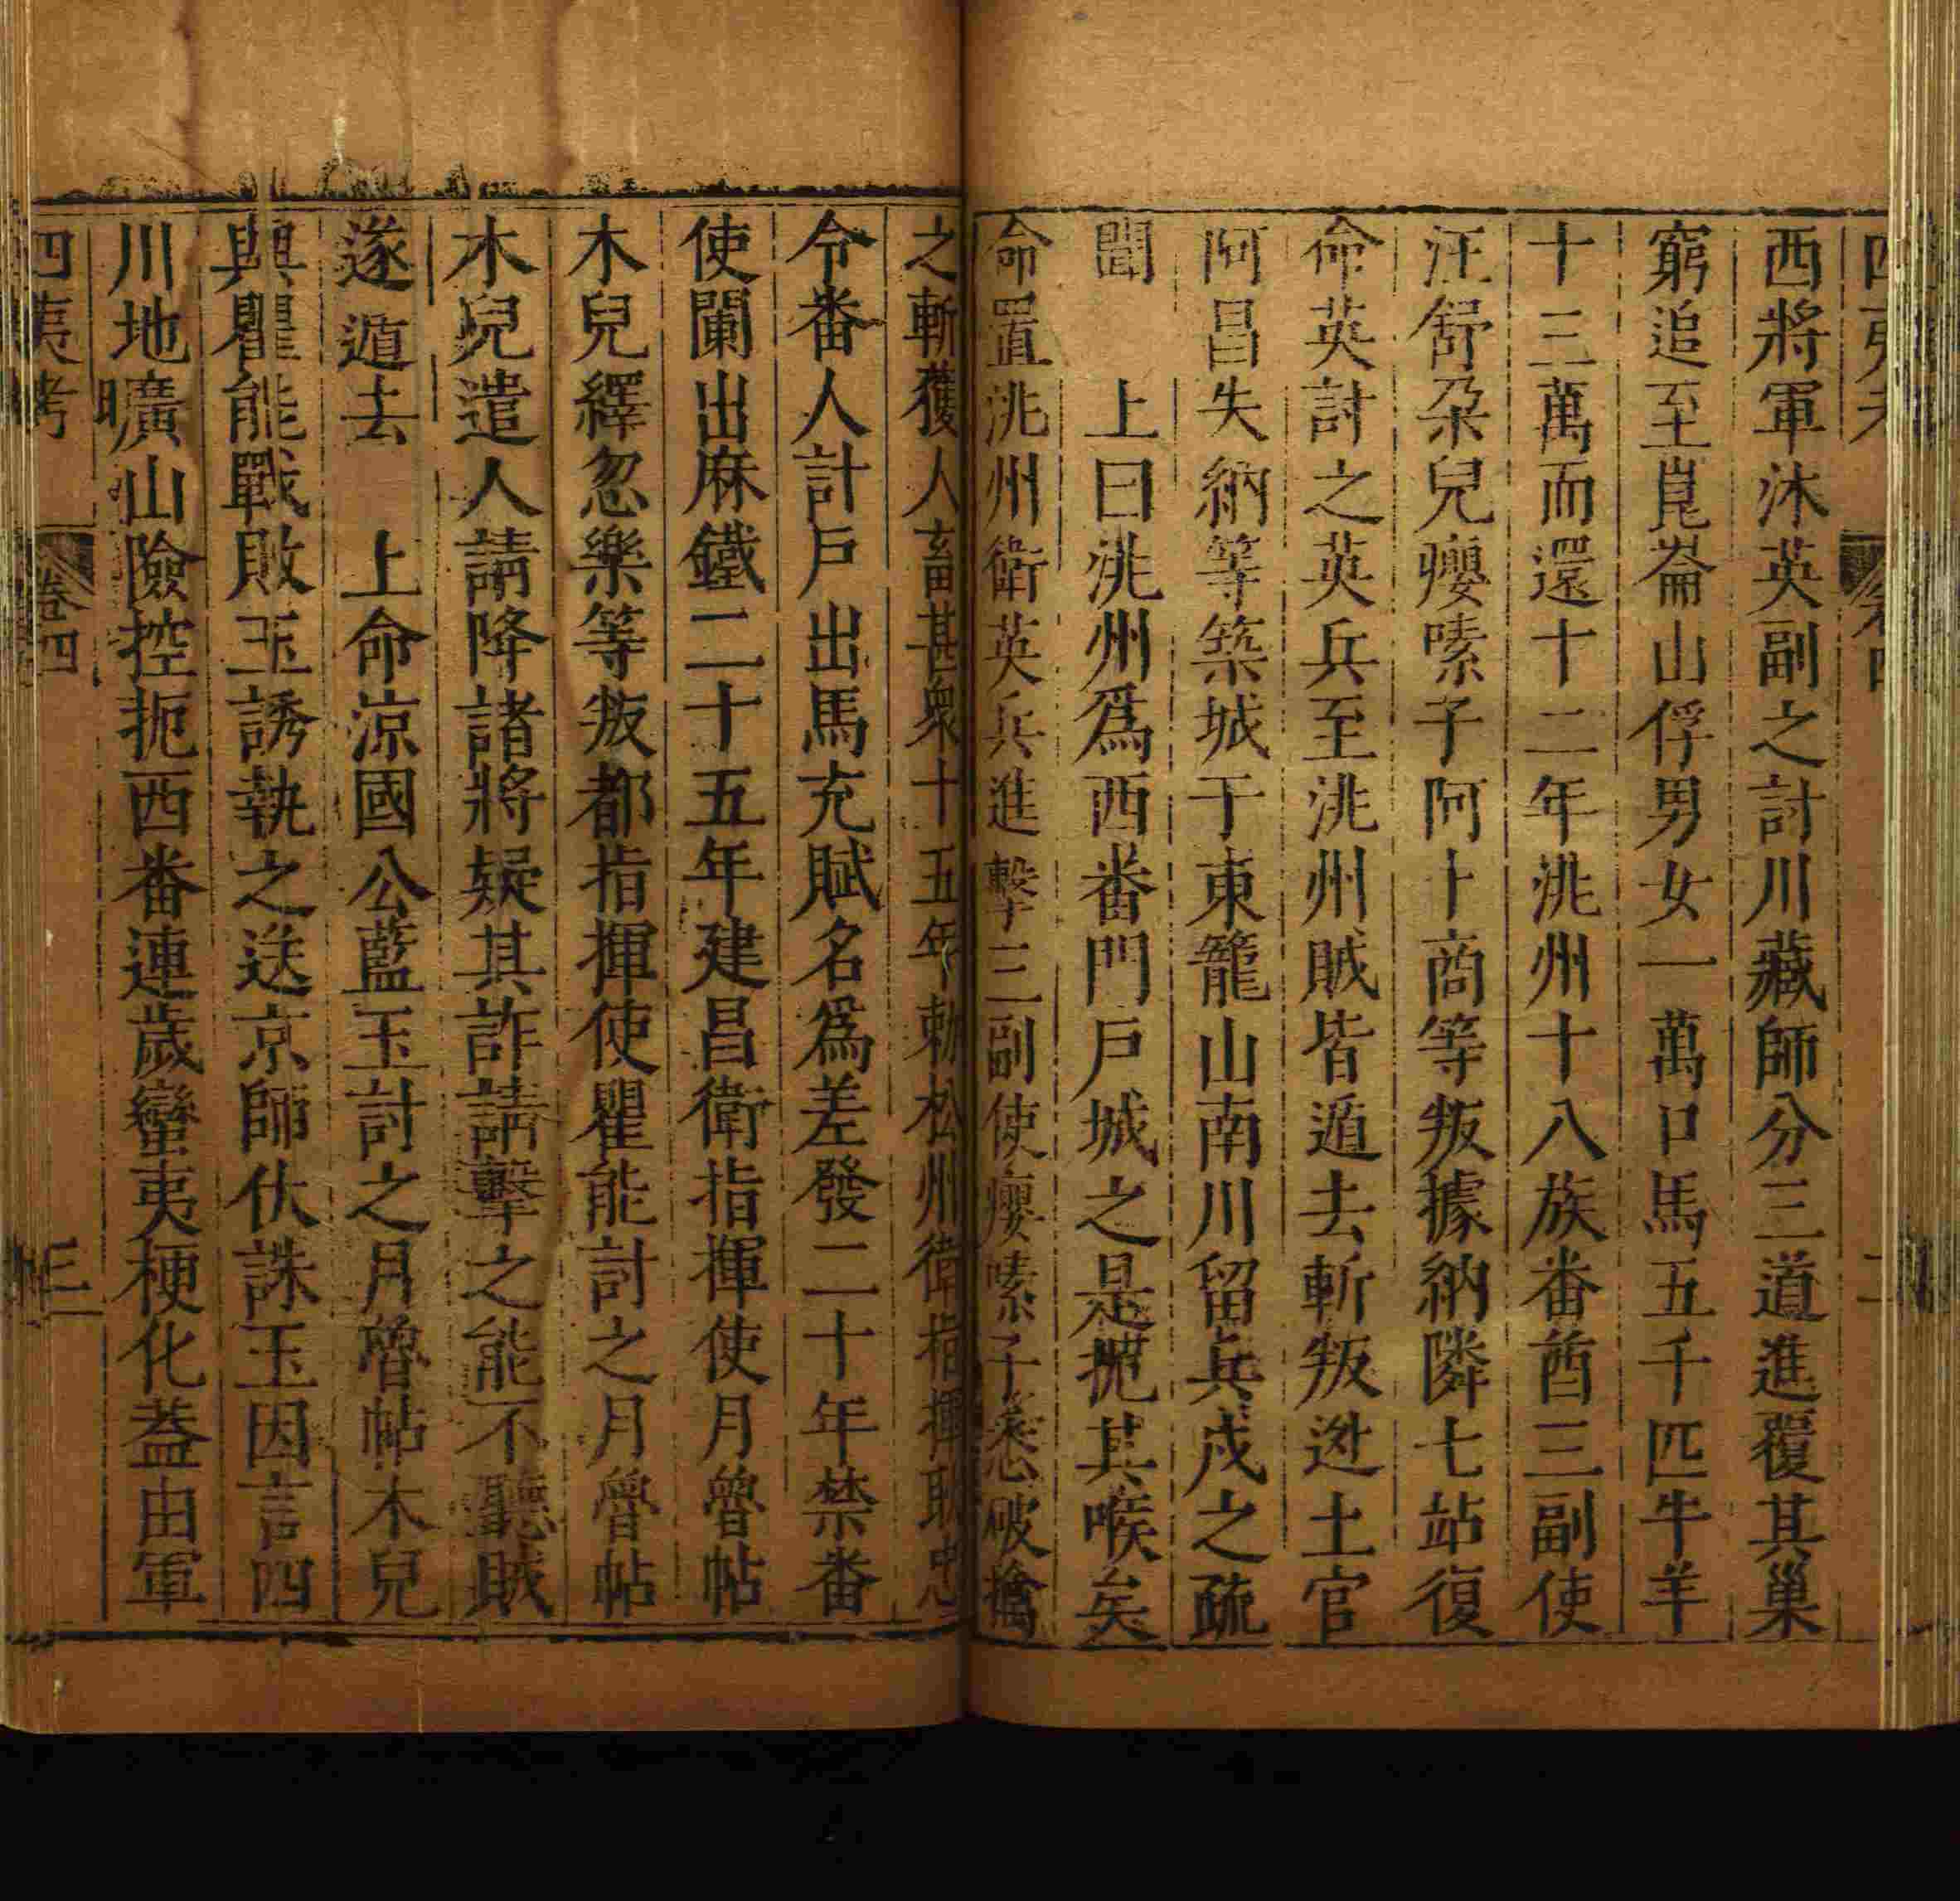 西將軍沐英副之討川藏師分三道進覆其巢
窮追至崑崙山俘男女一萬口馬五千匹牛羊
十三萬而還十二年洮州十八族番酋三副使
汪舒朶兒癭嗉子阿卜商等叛據納隣七站復
命英討之英兵至洮州賊皆遁去斬叛迯土官
阿昌失納等築城于東籠山南川留兵戍之疏
聞　上曰洮州爲西番門戸城之是扼其喉矣
命置洮州衛英兵進擊三副使癭嗉子悉破擒
之斬獲人畜甚衆十五年勑松州衛指揮耿忠
令番人計戸出馬充賦名爲差發二十年禁番
使闌出麻鐵二十五年建昌衛指揮使月魯帖
木兒繹忽樂等叛都指揮使瞿能討之月魯帖
木兒遣人請降諸將疑其詐請擊之能不聽賊
遂遁去　上命凉國公藍玉討之月魯帖木兒
與瞿能戰敗玉誘執之送京師伏誅玉因言四
川地曠山險控扼西番連歲蠻夷梗化葢由軍
四夷考　卷四　三